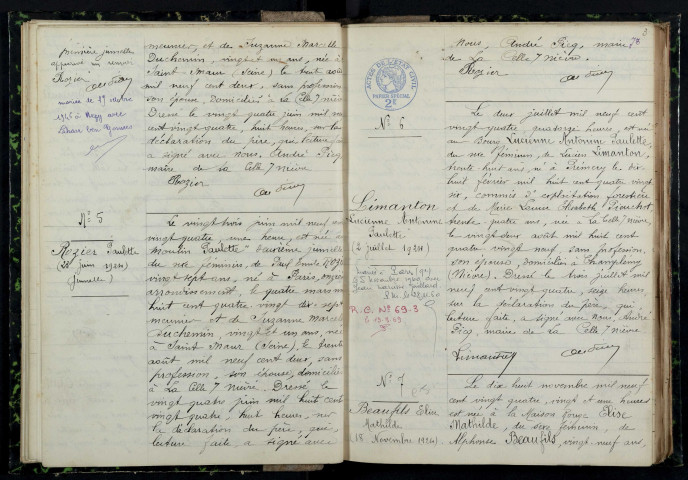 première jumelle
Rozier
mariée le 27 octobre
meunier, et de Suzanne Marcelle
Duchemin, vingt et un ans, née à
Saint Maur (Seine) le trente août
mil neuf cent deux, sans profession
son épouse, domiciliés à La Celle s/ Nièvre
Dressé le vingt quatre juin mil neuf
cent vingt quatre, huit heures, sur la
déclaration du père, qui, lecture faite
a signé avec nous. André Picq
maire de la Celle s/ Nièvre
Rozier
N° 5
Rozier Paulette
(23 juin 1924)
(Jumelle)
Le vingt trois juin mil neuf cent
vingt quatre, une heure, est née au
Moulin "Paulette" deuxième jumelle
du sexe féminin, de Paul Emile Rozier
vingt sept ans, né à Paris, onzième
arrondissement, le quatre mars mil
huit cent quatre vingt dix sept
meunier et de Suzanne Marcelle
Duchemin, vingt et un ans, née
à Saint Maur (Seine), le trente
août mil neuf cent deux, sans
profession, son épouse, domiciliés
à La Celle s/ Nièvre. Dressé le
vingt quatre juin mil neuf cent
vingt quatre, huit heures, sur
la déclaration du père, qui,
lecture faite, a signé avec
Nous, André Picq, maire
de La Celle s/ Nièvre.
Rozier
ACTES DE L'ÉTAT CIVIL
PAPIER SPÉCIAL
2F
N° 6
Limanton
Lucienne Antonine
Paulette
(2 juillet 1924)
R.C. N° 69-3
Le deux juillet mil neuf cent
vingt quatre, quatorze heures, est née
au Bourg Lucienne Antonine Paulette,
du sexe féminin, de Lucien Limanton,
trente huit ans, né à Prémery le dix
huit février mil huit cent quatre vingt
six, commis d'exploitation forestière
et de Marie Louise Elisabeth
trente quatre ans, née à La Celle s/ Nièvre
le vingt deux août mil huit cent
quatre vingt neuf, sans profession,
son épouse, domiciliés à Champlemy
(Nièvre). Dressé le trois juillet mil
neuf cent vingt quatre, seize heures,
sur la déclaration du père, qui,
lecture faite, a signé avec Nous, André
Picq, maire de La Celle s/ Nièvre
Limanton
N° 7
Beaufils Elise
Mathilde
(18 Novembre 1924)
Le dix huit novembre mil neuf
cent vingt quatre, vingt et une heures
est née à la Maison Rouge Elise
Mathilde, du sexe féminin, de
Alphonse Beaufils, vingt neuf ans,